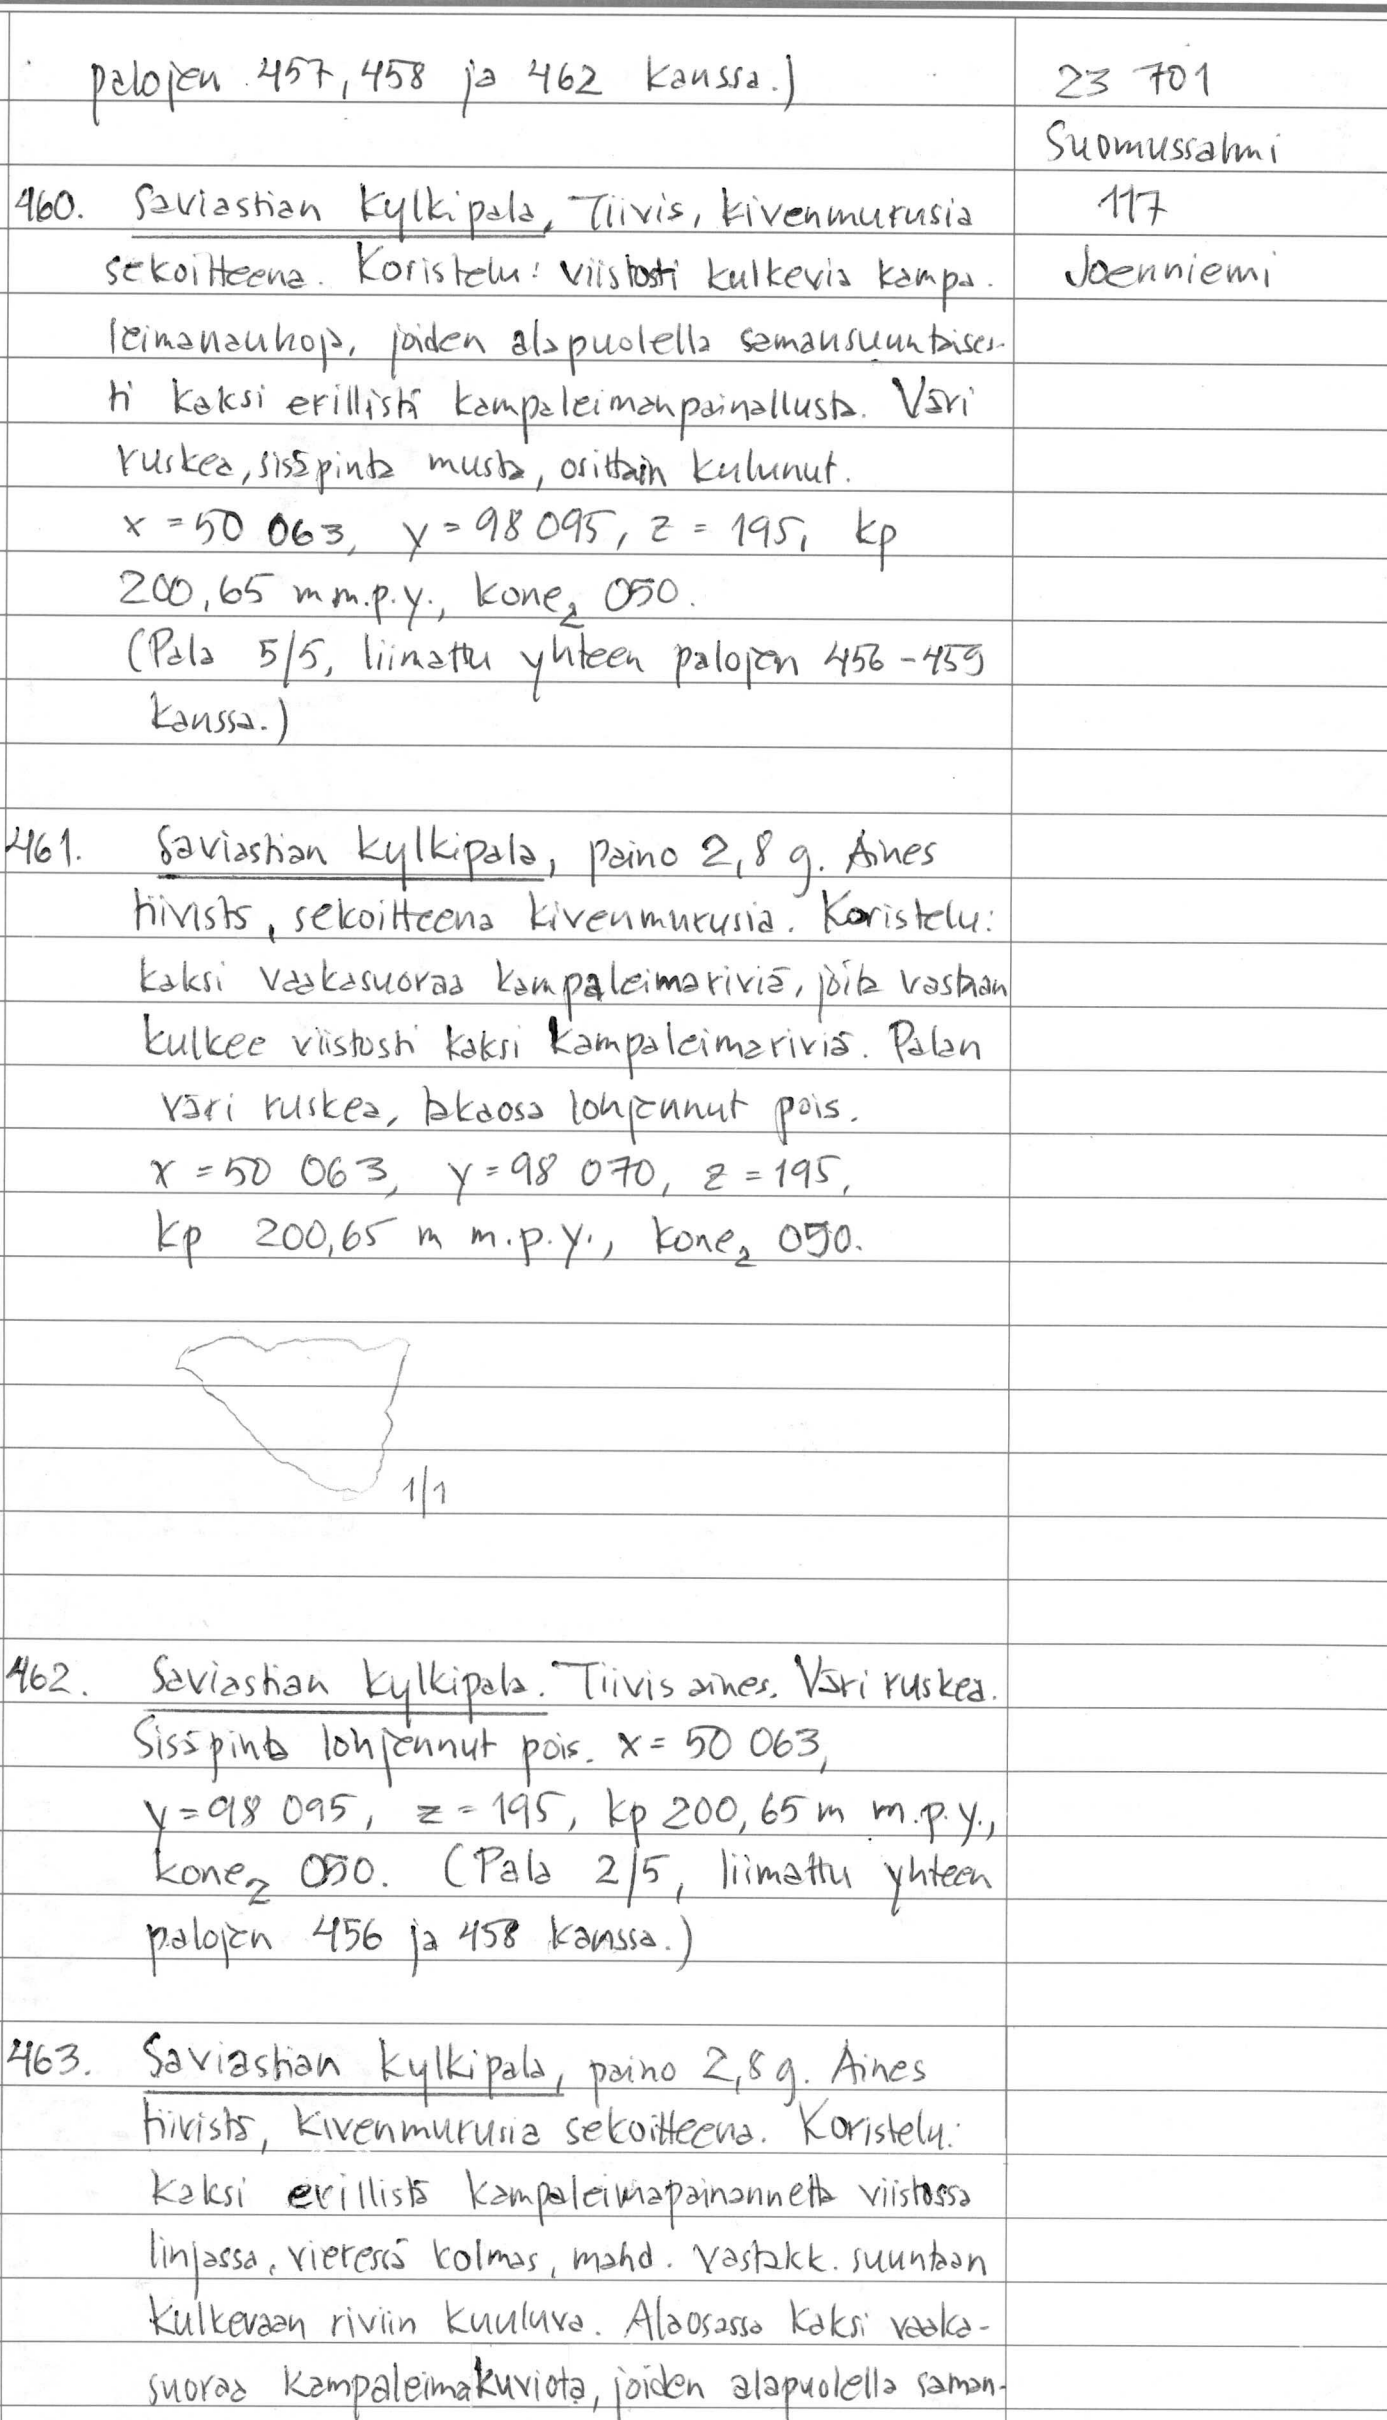 palojen 457, 458 ja 462 kanssa.)
23 701
Suomussalmi
117
Joenniemi
460. Saviastian kylkipala, Tiivis, kivenmurusia
sekoitteena. Koristelu: viistosti kulkevia kampa-
leimanauhoja, joiden alapuolella samansuuntaises-
ti kaksi erillistä kampaleimanpainallusta. Väri
ruskea, sisäpinta musta, osittain kulunut.
x = 50 063, y = 98 095, z = 195, kp
200,65 m m.p.y., kone₂ 050.
(Pala 5/5, liimattu yhteen palojen 456-459
kanssa.)
461. Saviastian kylkipala, paino 2,8 g. Aines
tiivistä, sekoitteena kivenmurusia. Koristelu:
kaksi vaakasuoraa kampaleimariviä, joita vastaan
kulkee viistosti kaksi kampaleimariviä. Palan
väri ruskea, takaosa lohjennut pois.
x = 50 063, y = 98 070, z = 195,
kp 200,65 m m.p.y., kone₂ 050.
1/1
462. Saviastian kylkipala. Tiivis aines. Väri ruskea.
Sisäpinta lohjennut pois. x = 50 063,
y = 98 095, z = 195, kp 200,65 m m.p.y.,
kone₂ 050. (Pala 2/5, liimattu yhteen
palojen 456 ja 458 kanssa.)
463. Saviastian kylkipala, paino 2,8 g. Aines
tiivistä, kivenmurusia sekoitteena. Koristelu:
kaksi erillistä kampaleimapainannetta viistossa
linjassa, vieressä kolmas, mahd. vastakk. suuntaan
kulkevaan riviin kuuluva. Alaosassa kaksi vaaka-
suoraa kampaleimakuviota, joiden alapuolella saman-